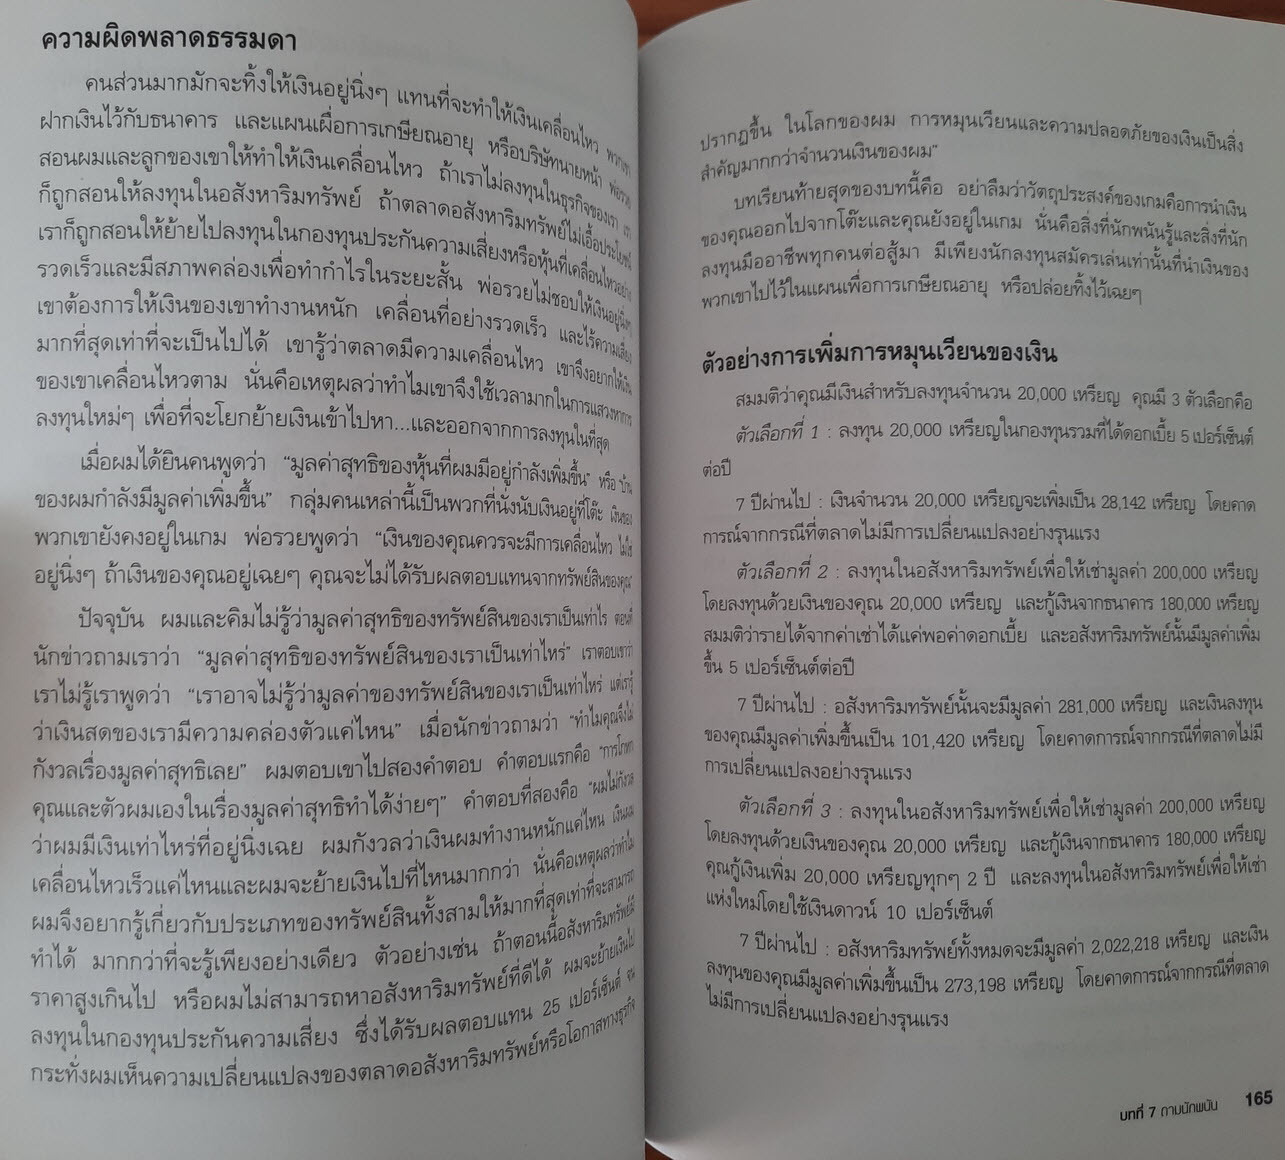 ความผิดพลาดธรรมดา
คนส่วนมากมักจะทิ้งให้เงินอยู่นิ่งๆ แทนที่จะทำให้เงินเคลื่อนไหว พวกเขา
ฝากเงินไว้กับธนาคาร และแผนเผื่อการเกษียณอายุ หรือบริษัทนายหน้า พ่อรวย
สอนผมและลูกของเขาให้ทำให้เงินเคลื่อนไหว ถ้าเราไม่ลงทุนในธุรกิจของเรา เรา
ก็ถูกสอนให้ลงทุนในอสังหาริมทรัพย์ ถ้าตลาดอสังหาริมทรัพย์ไม่เอื้อประโยชน์
เราก็ถูกสอนให้ย้ายไปลงทุนในกองทุนประกันความเสี่ยงหรือหุ้นที่เคลื่อนไหวอย่าง
รวดเร็วและมีสภาพคล่องเพื่อทำกำไรในระยะสั้น พ่อรวยไม่ชอบให้เงินอยู่นิ่งๆ
เขาต้องการให้เงินของเขาทำงานหนัก เคลื่อนที่อย่างรวดเร็ว และไร้ความเสี่ยง
มากที่สุดเท่าที่จะเป็นไปได้ เขารู้ว่าตลาดมีความเคลื่อนไหว เขาจึงอยากให้เงิน
ของเขาเคลื่อนไหวตาม นั่นคือเหตุผลว่าทำไมเขาจึงใช้เวลามากในการแสวงหาการ
ลงทุนใหม่ๆ เพื่อที่จะโยกย้ายเงินเข้าไปหา...และออกจากการลงทุนในที่สุด
เมื่อผมได้ยินคนพูดว่า “มูลค่าสุทธิของหุ้นที่ผมมีอยู่กำลังเพิ่มขึ้น” หรือ “บ้าน
ของผมกำลังมีมูลค่าเพิ่มขึ้น” กลุ่มคนเหล่านี้เป็นพวกที่นั่งนับเงินอยู่ที่โต๊ะ เงินของ
พวกเขายังคงอยู่ในเกม พ่อรวยพูดว่า “เงินของคุณควรจะมีการเคลื่อนไหว ไม่ใช่
อยู่นิ่งๆ ถ้าเงินของคุณอยู่เฉยๆ คุณจะไม่ได้รับผลตอบแทนจากทรัพย์สินของคุณ”
ปัจจุบัน ผมและคิมไม่รู้ว่ามูลค่าสุทธิของทรัพย์สินของเราเป็นเท่าไร ตอนที่
นักข่าวถามเราว่า “มูลค่าสุทธิของทรัพย์สินของเราเป็นเท่าไหร่” เราตอบเขาว่า
เราไม่รู้เราพูดว่า “เราอาจไม่รู้ว่ามูลค่าของทรัพย์สินของเราเป็นเท่าไหร่ แต่เรารู้
ว่าเงินสดของเรามีความคล่องตัวแค่ไหน” เมื่อนักข่าวถามว่า “ทำไมคุณจึงไม่
กังวลเรื่องมูลค่าสุทธิเลย” ผมตอบเขาไปสองคำตอบ คำตอบแรกคือ “การโกหก
คุณและตัวผมเองในเรื่องมูลค่าสุทธิทำได้ง่ายๆ” คำตอบที่สองคือ “ผมไม่กังวล
ว่าผมมีเงินเท่าไหร่ที่อยู่นิ่งเฉย ผมกังวลว่าเงินผมทำงานหนักแค่ไหน เงินผม
เคลื่อนไหวเร็วแค่ไหนและผมจะย้ายเงินไปที่ไหนมากกว่า นั่นคือเหตุผลว่าทำไม
ผมจึงอยากรู้เกี่ยวกับประเภทของทรัพย์สินทั้งสามให้มากที่สุดเท่าที่จะสามารถ
ทำได้ มากกว่าที่จะรู้เพียงอย่างเดียว ตัวอย่างเช่น ถ้าตอนนี้อสังหาริมทรัพย์มี
ราคาสูงเกินไป หรือผมไม่สามารถหาอสังหาริมทรัพย์ที่ดีได้ ผมจะย้ายเงินไป
ลงทุนในกองทุนประกันความเสี่ยง ซึ่งได้รับผลตอบแทน 25 เปอร์เซ็นต์ จน
กระทั่งผมเห็นความเปลี่ยนแปลงของตลาดอสังหาริมทรัพย์หรือโอกาสทางธุรกิจ
ปรากฏขึ้น ในโลกของผม การหมุนเวียนและความปลอดภัยของเงินเป็นสิ่ง
สำคัญมากกว่าจำนวนเงินของผม”
บทเรียนท้ายสุดของบทนี้คือ อย่าลืมว่าวัตถุประสงค์ของเกมคือการนำเงิน
ของคุณออกไปจากโต๊ะและคุณยังอยู่ในเกม นั่นคือสิ่งที่นักพนันรู้และสิ่งที่นัก
ลงทุนมืออาชีพทุกคนต่อสู้มา มีเพียงนักลงทุนสมัครเล่นเท่านั้นที่นำเงินของ
พวกเขาไปไว้ในแผนเพื่อการเกษียณอายุ หรือปล่อยทิ้งไว้เฉยๆ
ตัวอย่างการเพิ่มการหมุนเวียนของเงิน
สมมติว่าคุณมีเงินสำหรับลงทุนจำนวน 20,000 เหรียญ คุณมี 3 ตัวเลือกคือ
ตัวเลือกที่ 1 : ลงทุน 20,000 เหรียญในกองทุนรวมที่ได้ดอกเบี้ย 5 เปอร์เซ็นต์
ต่อปี
7 ปีผ่านไป : เงินจำนวน 20,000 เหรียญจะเพิ่มเป็น 28,142 เหรียญ โดยคาด
การณ์จากกรณีที่ตลาดไม่มีการเปลี่ยนแปลงอย่างรุนแรง
ตัวเลือกที่ 2 : ลงทุนในอสังหาริมทรัพย์เพื่อให้เช่ามูลค่า 200,000 เหรียญ
โดยลงทุนด้วยเงินของคุณ 20,000 เหรียญ และกู้เงินจากธนาคาร 180,000 เหรียญ
สมมติว่ารายได้จากค่าเช่าได้แค่พอค่าดอกเบี้ย และอสังหาริมทรัพย์นั้นมีมูลค่าเพิ่ม
ขึ้น 5 เปอร์เซ็นต์ต่อปี
7 ปีผ่านไป : อสังหาริมทรัพย์นั้นจะมีมูลค่า 281,000 เหรียญ และเงินลงทุน
ของคุณมีมูลค่าเพิ่มขึ้นเป็น 101,420 เหรียญ โดยคาดการณ์จากกรณีที่ตลาดไม่มี
การเปลี่ยนแปลงอย่างรุนแรง
ตัวเลือกที่ 3 : ลงทุนในอสังหาริมทรัพย์เพื่อให้เช่ามูลค่า 200,000 เหรียญ
โดยลงทุนด้วยเงินของคุณ 20,000 เหรียญ และกู้เงินจากธนาคาร 180,000 เหรียญ
คุณกู้เงินเพิ่ม 20,000 เหรียญทุกๆ 2 ปี และลงทุนในอสังหาริมทรัพย์เพื่อให้เช่า
แห่งใหม่โดยใช้เงินดาวน์ 10 เปอร์เซ็นต์
7 ปีผ่านไป : อสังหาริมทรัพย์ทั้งหมดจะมีมูลค่า 2,022,218 เหรียญ และเงิน
ลงทุนของคุณมีมูลค่าเพิ่มขึ้นเป็น 273,198 เหรียญ โดยคาดการณ์จากกรณีที่ตลาด
ไม่มีการเปลี่ยนแปลงอย่างรุนแรง
บทที่ 7 ถามนักพนัน 165